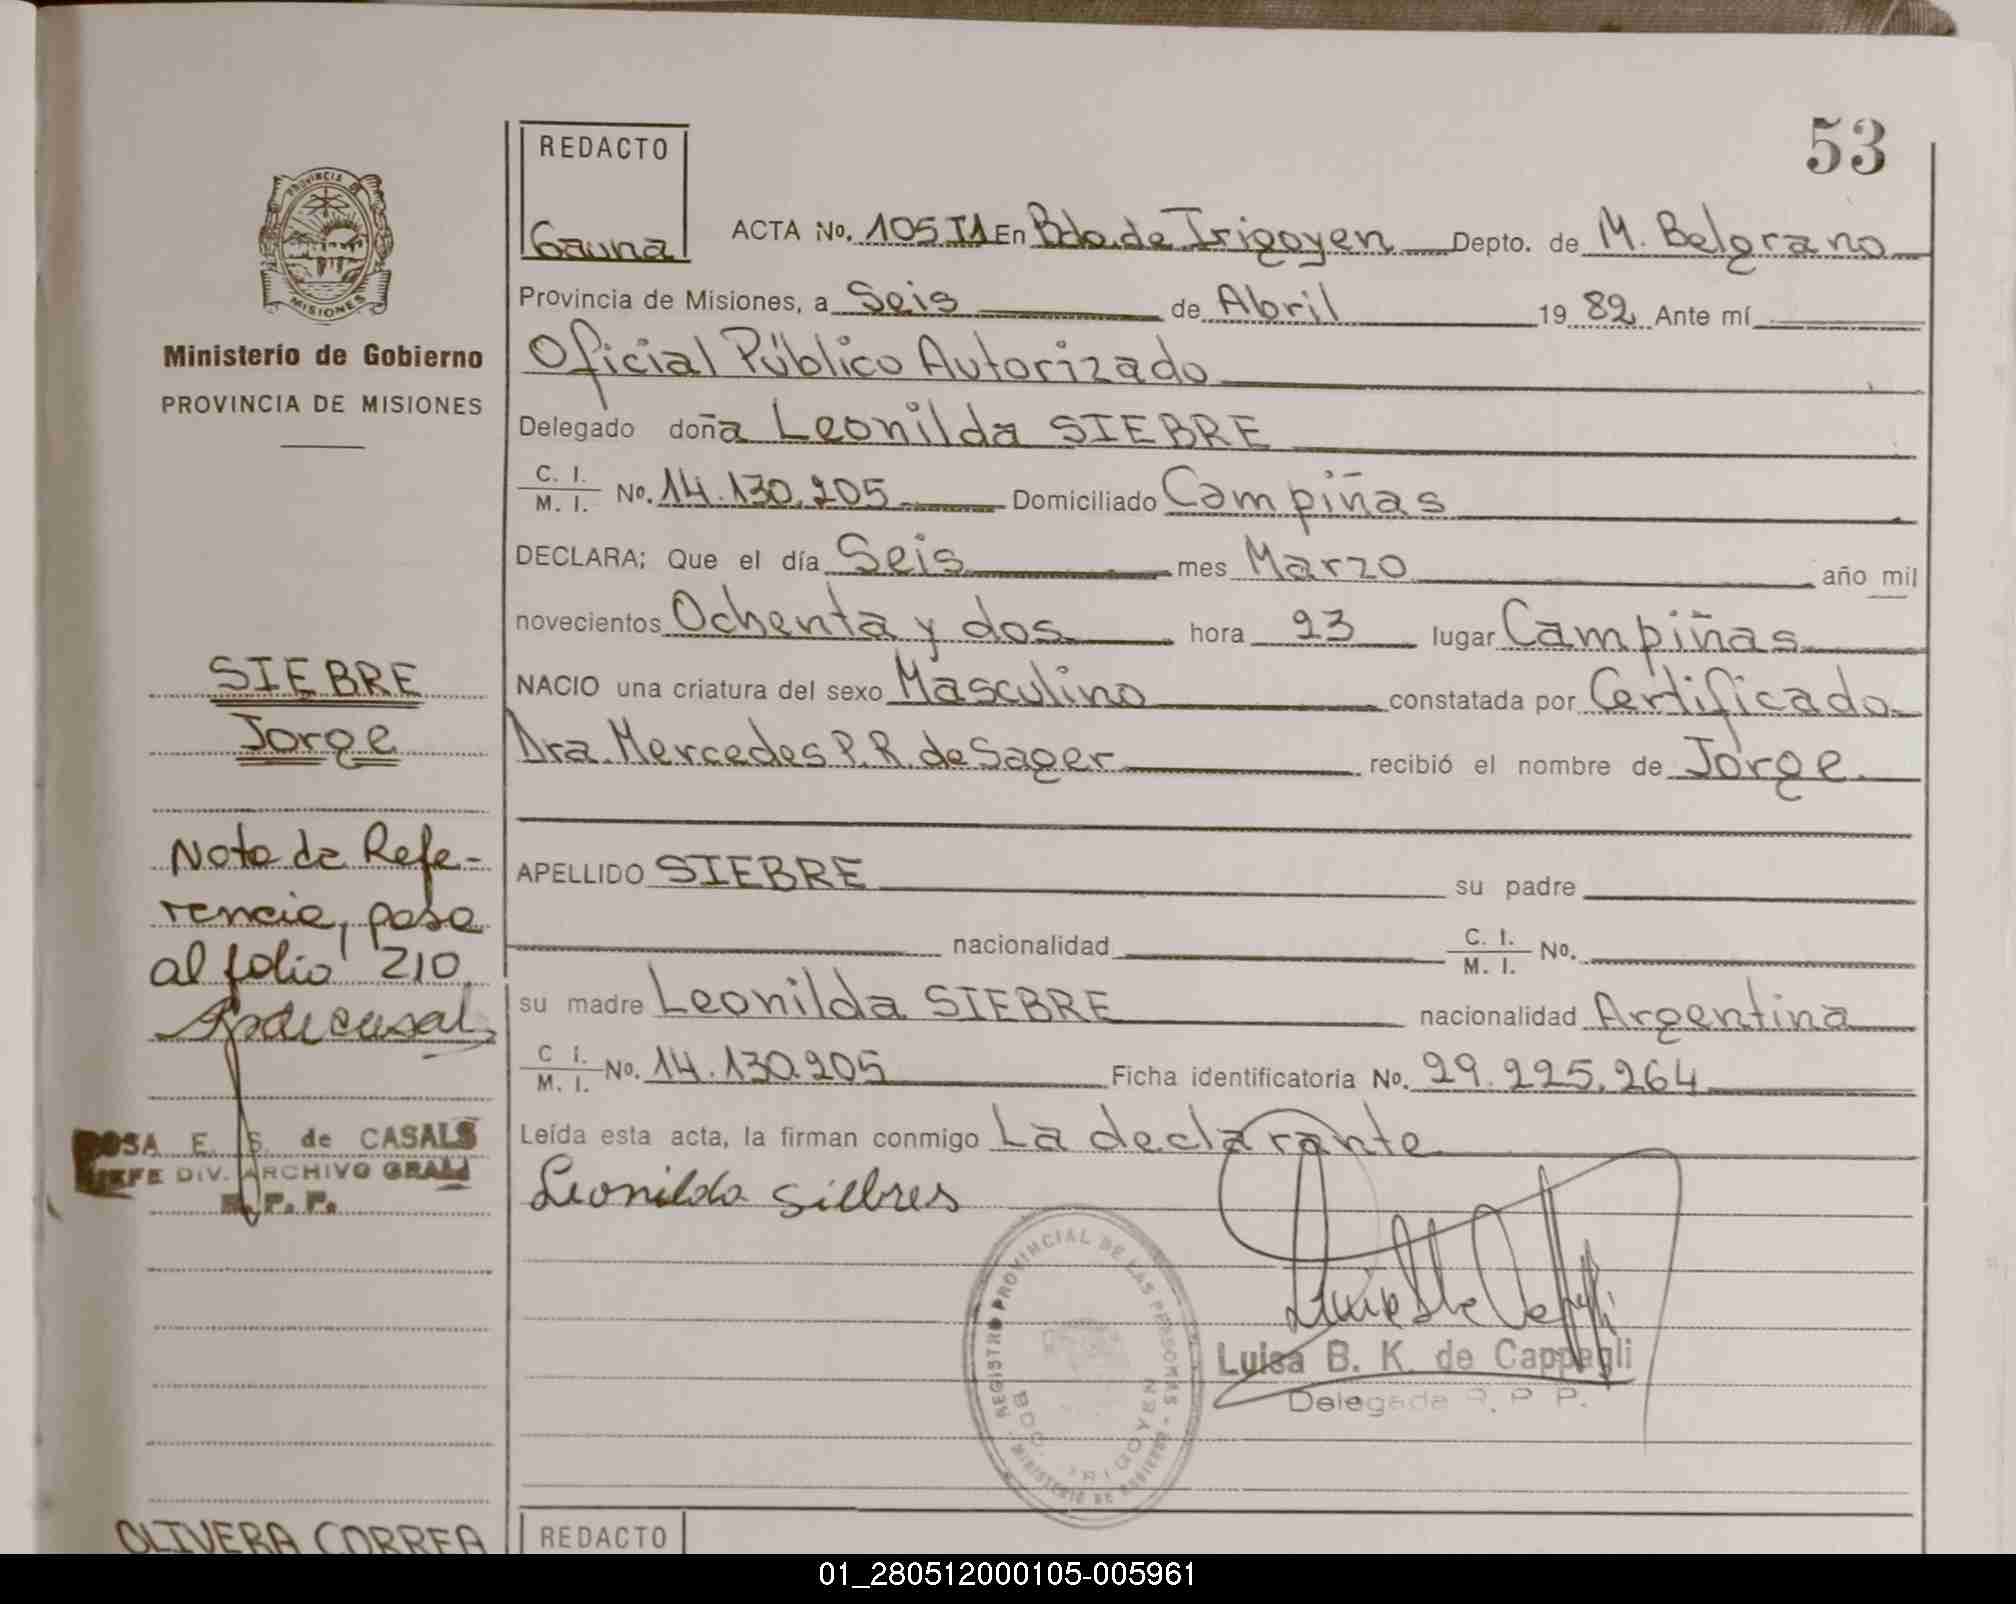 53
REDACTO
Gauna
ACTA No. 105 T1 En Bdo. de Irigoyen Depto. de M. Belgrano
Provincia de Misiones, a Seis de Abril 19 82 Ante mí
Oficial Público Autorizado
Delegado doña Leonilda SIEBRE
C. I. / M. I. No. 14.130.205 Domiciliado Campiñas
DECLARA: Que el día Seis mes Marzo año mil
novecientos Ochenta y dos hora 23 lugar Campiñas
NACIO una criatura del sexo Masculino constatada por Certificado
Dra. Mercedes P. R. de Sager recibió el nombre de Jorge
APELLIDO SIEBRE su padre
nacionalidad C. I. / M. I. No.
su madre Leonilda SIEBRE nacionalidad Argentina
C I. / M. I. No. 14.130.205 Ficha identificatoria No. 29.225.264
Leída esta acta, la firman conmigo La declarante
Leonilda Siebres
REGISTRO PROVINCIAL DE LAS PERSONAS - MINISTERIO DE GOBIERNO
BDO. IRIGOYEN
Luisa B. K. de Cappagli
Delegada R. P. P.
PROVINCIA DE
MISIONES
Ministerio de Gobierno
PROVINCIA DE MISIONES
SIEBRE
Jorge
Nota de Refe-
rencia, pasa
al folio 210
ROSA E. S. de CASALS
JEFE DIV. ARCHIVO GRAL
R. P. P.
OLIVERA CORREA
REDACTO
01_280512000105-005961